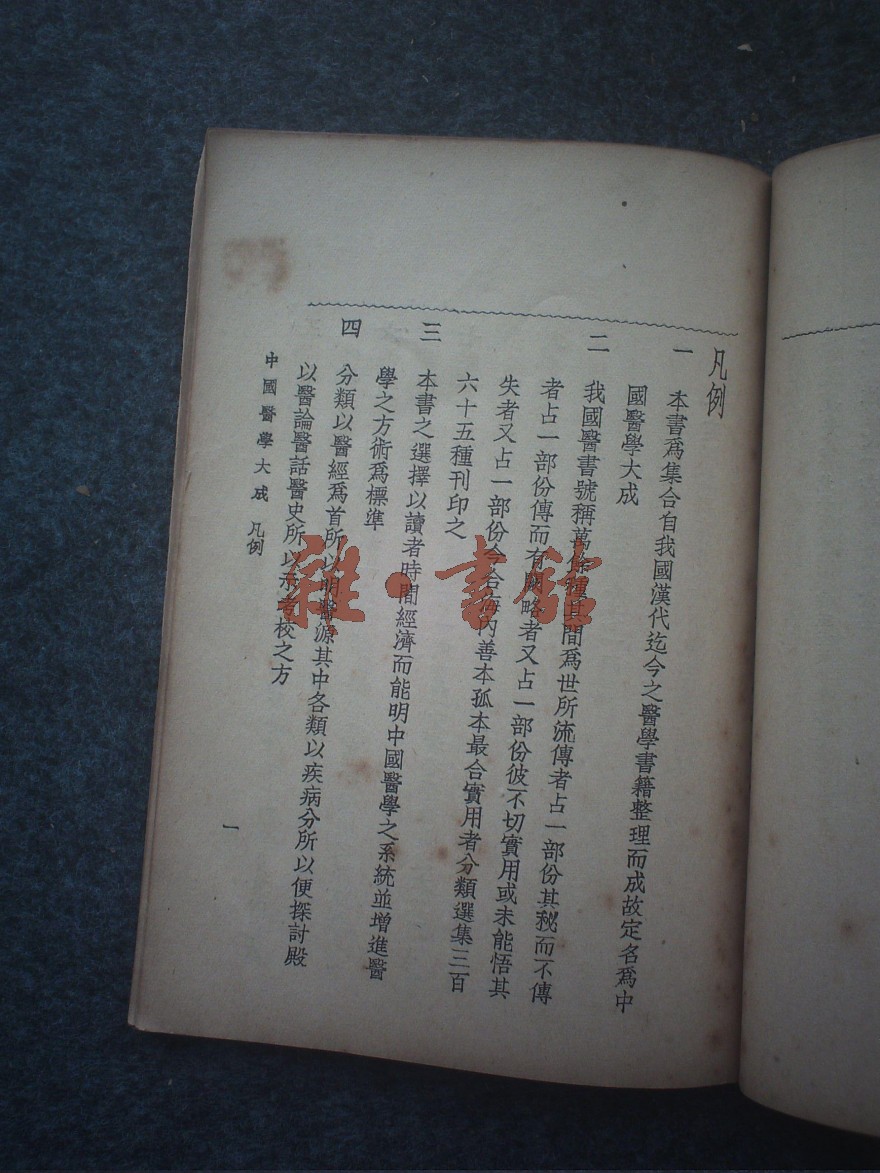 凡例
一 本書爲集合自我國漢代迄今之醫學書籍整理而成故定名爲中
國醫學大成
二 我國醫書號稱萬餘種其間爲世所流傳者占一部份其秘而不傳
者占一部份傳而有闕略者又占一部份彼不切實用或未能悟其
失者又占一部份今合海內善本孤本最合實用者分類選集三百
六十五種刊印之
三 本書之選擇以讀者時間經濟而能明中國醫學之系統並增進醫
學之方術爲標準
四 分類以醫經爲首所以明醫源其中各類以疾病分所以便探討殿
以醫論醫話醫史所以示考校之方
中國醫學大成 凡例
一
雜·書館